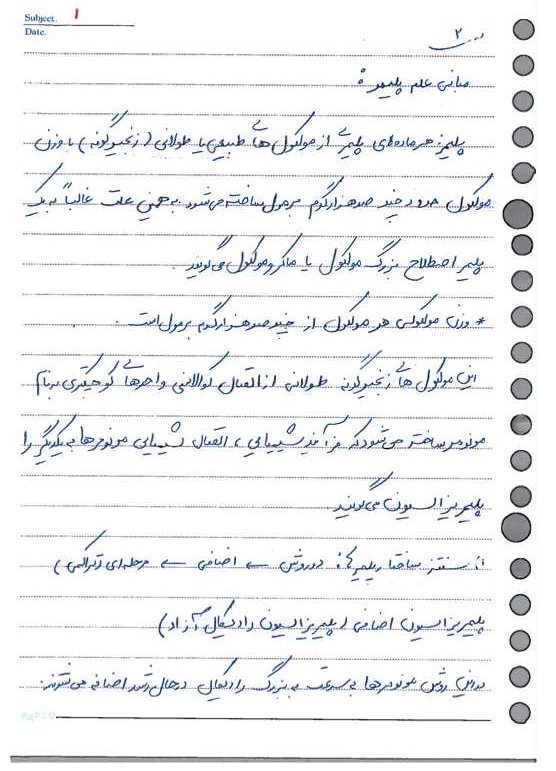 Subject. 1
Date.
۲
مبانی علم پلیمر:
پلیمر: هر ماده‌ای پلیمری از مولکول هایی طبیعی یا طولانی (زنجیر گونه) با وزن
مولکول حدود چند صد هزار گرم بر مول ساخته می‌شود به همین علت غالباً به یک
پلیمر اصطلاح بزرگ مولکول یا ماکرومولکول می گویند.
* وزن مولکولی هر مولکول از چند صد هزار گرم بر مول است.
این مولکول های زنجیر گونه طولانی از اتصال کوالانسی واحدهای کوچیکتری به نام
مونومر ساخته می‌شود که فرآیند شیمیایی، اتصال شیمیایی مونومرها به یکدیگر را
پلیمریزاسیون می گویند
سنتز ساختار پلیمرها: دو روش ← اضافی ← مرحله‌ای (تراکمی)
پلیمریزاسیون اضافی (پلیمریزاسیون رادیکال آزاد)
در این روش مونومرها به سرعت به بزرگ رادیکال در حال رشد اضافه می شوند.
PAPCO